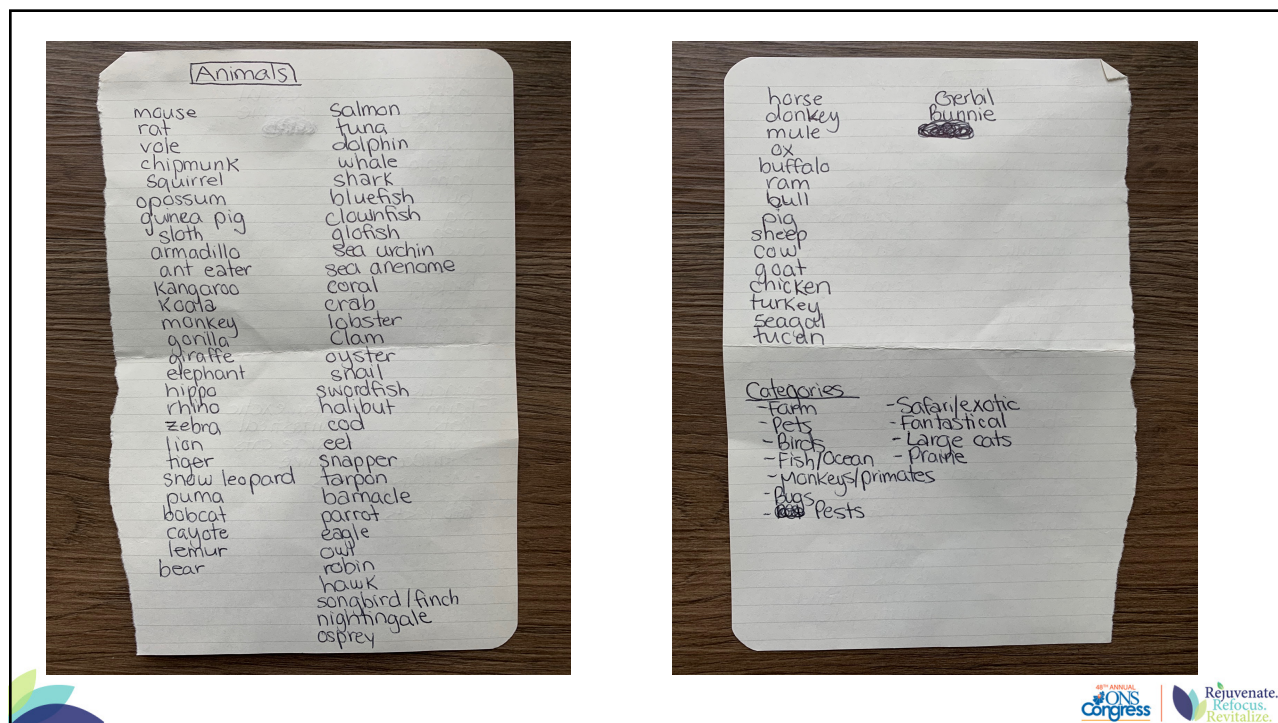 Animals
mouse
rat
vole
chipmunk
squirrel
opossum
guinea pig
sloth
armadillo
ant eater
kangaroo
koala
monkey
gorilla
giraffe
elephant
hippo
rhino
zebra
lion
tiger
snow leopard
puma
bobcat
cayote
lemur
bear
salmon
tuna
dolphin
whale
shark
bluefish
clownfish
glofish
sea urchin
sea anenome
coral
crab
lobster
clam
oyster
snail
swordfish
halibut
cod
eel
snapper
tarpon
barnacle
parrot
eagle
owl
robin
hawk
songbird/finch
nightingale
osprey
horse
donkey
mule
ox
buffalo
ram
bull
pig
sheep
cow
goat
chicken
turkey
seagal
tucan
Gerbil
Bunnie
Categories
-Farm
-Pets
-Birds
-Fish/Ocean
-Monkeys/primates
-Bugs
- Pests
-Safari/exotic
-Fantastical
-Large cats
-Prairie
48TH ANNUAL
ONS
Congress
Rejuvenate.
Refocus.
Revitalize.